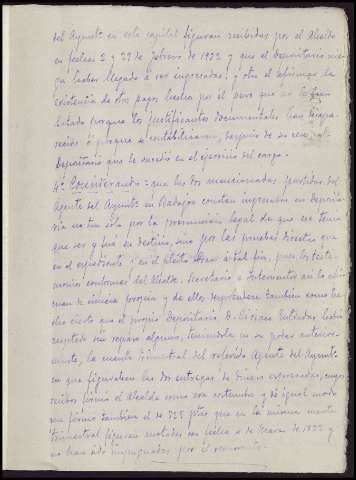 del Ayunto en esta capital figuran recibidas por el Alcalde
en fechas 2 y 27 de febrero de 1922 y que el Depositario nie-
ga haber llegado a ser ingresadas; y otra el
existencia de dos pagos hechos por él pero que no le
justificantes documentales han desapa-
recido ó porque se contabilizaran, después de su cese,
Depositario que le sucedió en el ejercicio del cargo.
4º Considerando: que las dos mencionadas partidas del
Agente del Ayunto en Badajoz constan ingresadas en deposita-
ría no tan solo por la presunción legal de que ese tenía
que ser y fué su destino, sino por las pruebas directas que
en el expediente, en el efecto, a tal fin, pues los testi-
monios conformes del Alcalde, Secretario e Interventor así lo afir-
man de ciencia propia y de ellos
cierto que el propio Depositario D.
sin reparo alguno, teniéndola en su poder anterior-
mente, la cuenta trimestral del referido Agente del Ayunto
en que figuraban las dos entregas de dinero expresadas, cuyos
recibos firmó el Alcalde como era costumbre y de igual modo
que firmó también el de 325 ptas que en la misma cuenta
trimestral figuran anotadas con fecha 4 de Marzo de 1922 y
no han sido impugnadas por el recurrente.